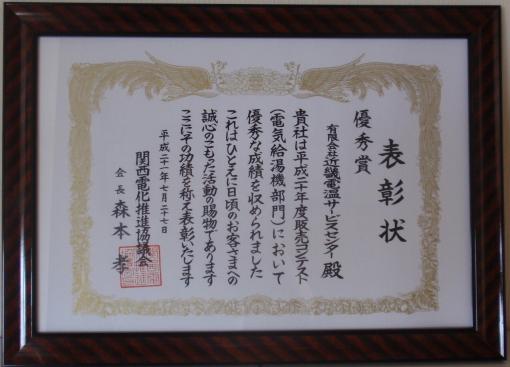 表彰状
優秀賞
有限会社近畿電温サービスセンター 殿
貴社は平成二十年度販売コンテスト
(電気給湯機部門)において
優秀な成績を収められました
これはひとえに日頃のお客さまへの
誠心のこもった活動の賜物であります
ここにその功績を称え表彰いたします
平成二十一年七月二十七日
関西電化推進協議会
会長 森本 孝